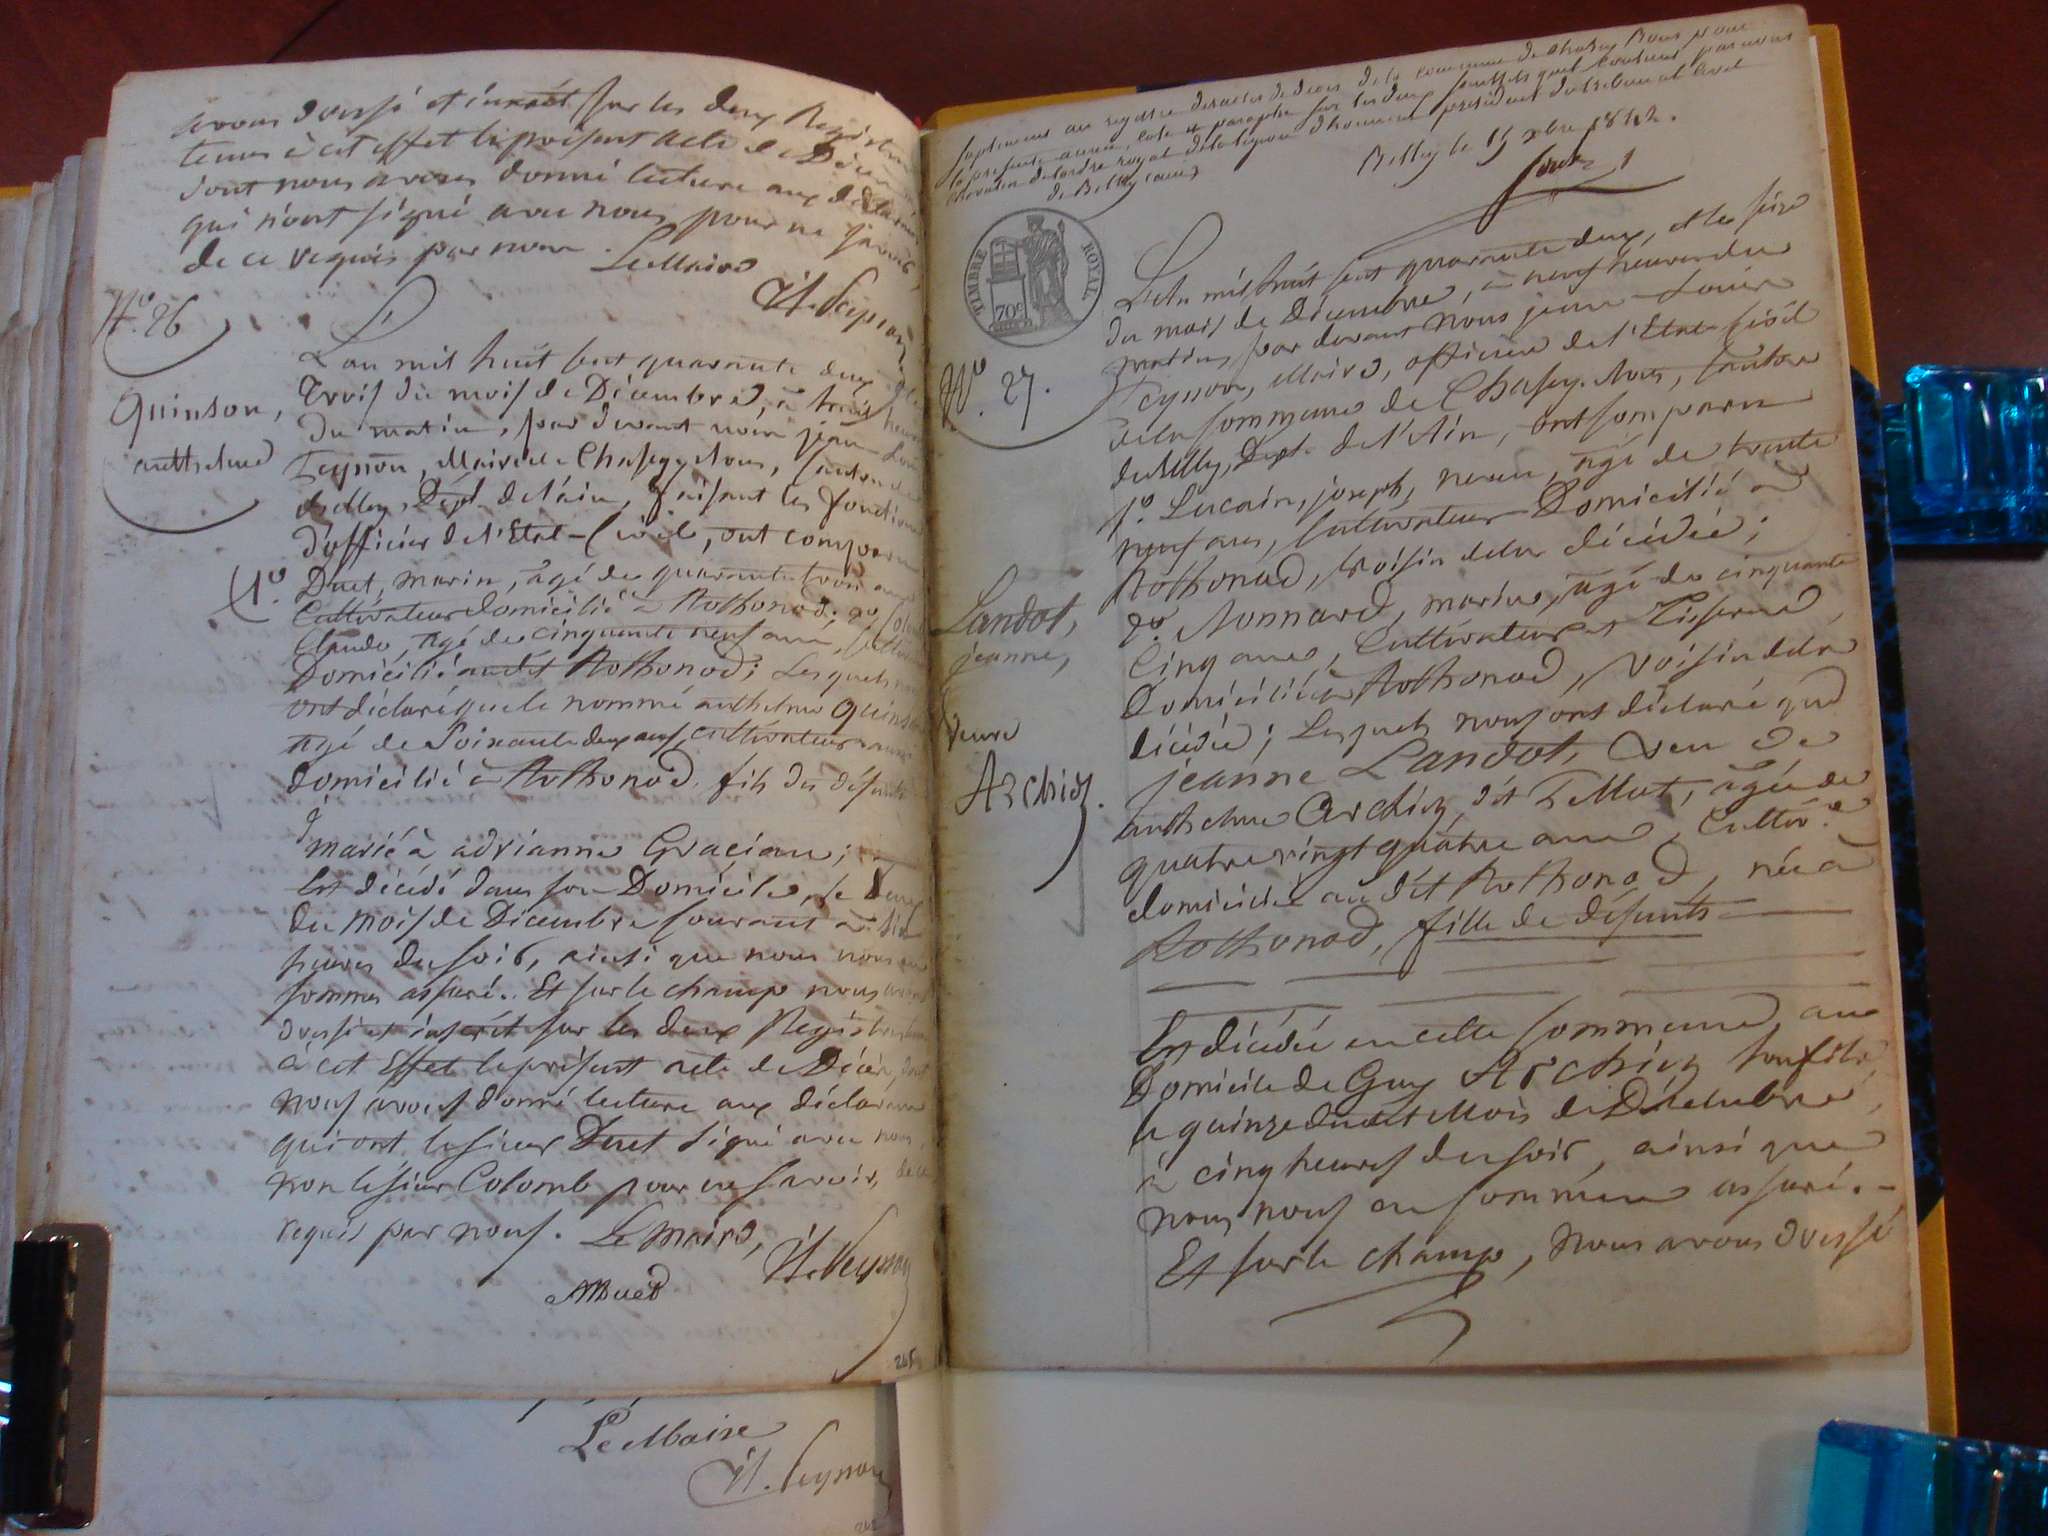 avons dressé et inscrit sur les deux Registres
tenus à cet effet le présent acte de Décès
dont nous avons donné lecture aux déclarants
qui n'ont signé avec nous pour ne savoir,
de ce requis par nous. Le Maire
N.º 26
Quinson,
anthelme
L'an mil huit cent quarante deux
trois du mois de Décembre, à huit heures
du matin, par devant nous jean Louis
Teynon, Maire de Chasey-Nous, canton de
Belley, Dépt. de l'ain, faisant les fonctions
d'officier de l'Etat-Civil, ont comparu
1.º Duet, marin, âgé de quarante trois ans
Cultivateur domicilié à Rothonod. 2º Colomb
Claude, âgé de cinquante neuf ans, Cultivateur
Domicilié audit Rothonod; Lesquels nous
ont déclaré que le nommé anthelme Quinson
âgé de Soixante deux ans, cultivateur
domicilié à Rothonod, fils des défunts
marié à adrianne Gracian;
Est décédé dans son Domicile, le Deux
du mois de Décembre Courant à
heures du soir, ainsi que nous nous en
sommes assuré. Et sur le champ nous avons
dressé et inscrit sur les deux Registres
à cet Effet le présent acte de Décès, dont
nous avons donné lecture aux déclarans
qui ont le sieur Duet signé avec nous,
non le sieur Colomb pour ne savoir, de ce
requis par nous. Le Maire,
Le Maire
Supplement au registre des actes de deces de la commune de Chasey Bons pour
la presente année, coté et paraphé sur les deux feuillets qu'il contient par nous
chevalier de l'ordre royal de la légion d'honneur president du tribunal civil
de Belley (ain)
Belley le 15 xbre 1842.
TIMBRE ROYAL
70c
N.º 27.
Landot,
jeanne,
veuve
Archiez.
L'an mil huit cent quarante deux, et le seize
du mois de Décembre, à neuf heures du
matin, par devant Nous jean-Louis
Teynon, Maire, officier de l'Etat-Civil
de la Commune de Chasey-Nous, Canton
de Belley, Dept. de l'Ain, ont comparu
1.º Lucain, joseph, neveu, âgé de trente
neuf ans, Cultivateur Domicilié à
Rothonod, Voisin de la décédée;
2º. Monnard, marin, âgé de cinquante
Cinq ans, Cultivateur et Tisserand,
Domicilié à Rothonod, Voisin de la
décédée; Lesquels nous ont déclaré que
jeanne Landot, Veuve de
anthelme Archiez, dit Tellut, âgée de
quatre vingt quatre ans, Cultiv.ce
domiciliée au dit Rothonod, née à
Rothonod, fille de défunts
Est décédée en cette Commune, au
Domicile de Guy Archiez son fils,
le quinze du dit Mois de Décembre,
à cinq heures du soir, ainsi que
nous nous en sommes assuré.-
Et sur le champ, Nous avons dressé